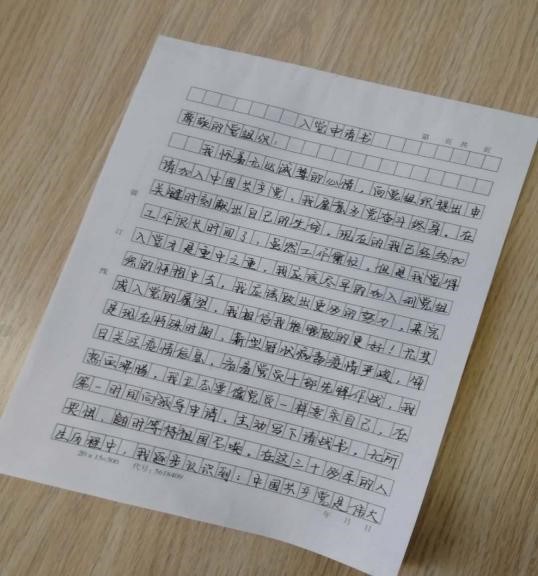 入党申请书
第 页 共 页
尊敬的党组织：
我怀着无比诚尊的心情，向党组织提出申
请加入中国共产党，我愿意为党奋斗终身。在
关键时刻献出自己的生命，现在的我已经参加
工作很长时间了，虽然工作繁忙，但是我觉得
入党才是重中之重，我应该尽早的加入到党组
织的怀抱中去，我应该做出更多的努力，来完
成入党的愿望，我相信我能够做的更好！尤其
是现在特殊时期，新型冠状病毒疫情严峻，每
日关注疫情信息，看着党员干部先锋作战，我
热血沸腾，我立志要像党员一样要求自己，在
第一时间向领导申请，主动写下请战书，无所
畏惧，随时等待祖国召唤，在这三十多年的人
生历程中，我逐步认识到：中国共产党是伟大
20×15=300 代号：5618409
年 月 日
装
订
线